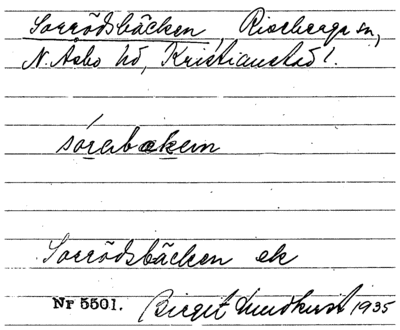 Sorrödsbäcken, Riseberga sn,
N. Åsbo hd, Kristianstad l.
sórabækern
Sorrödsbäcken ek
Nr 5501. Birgit Lundkvist 1935